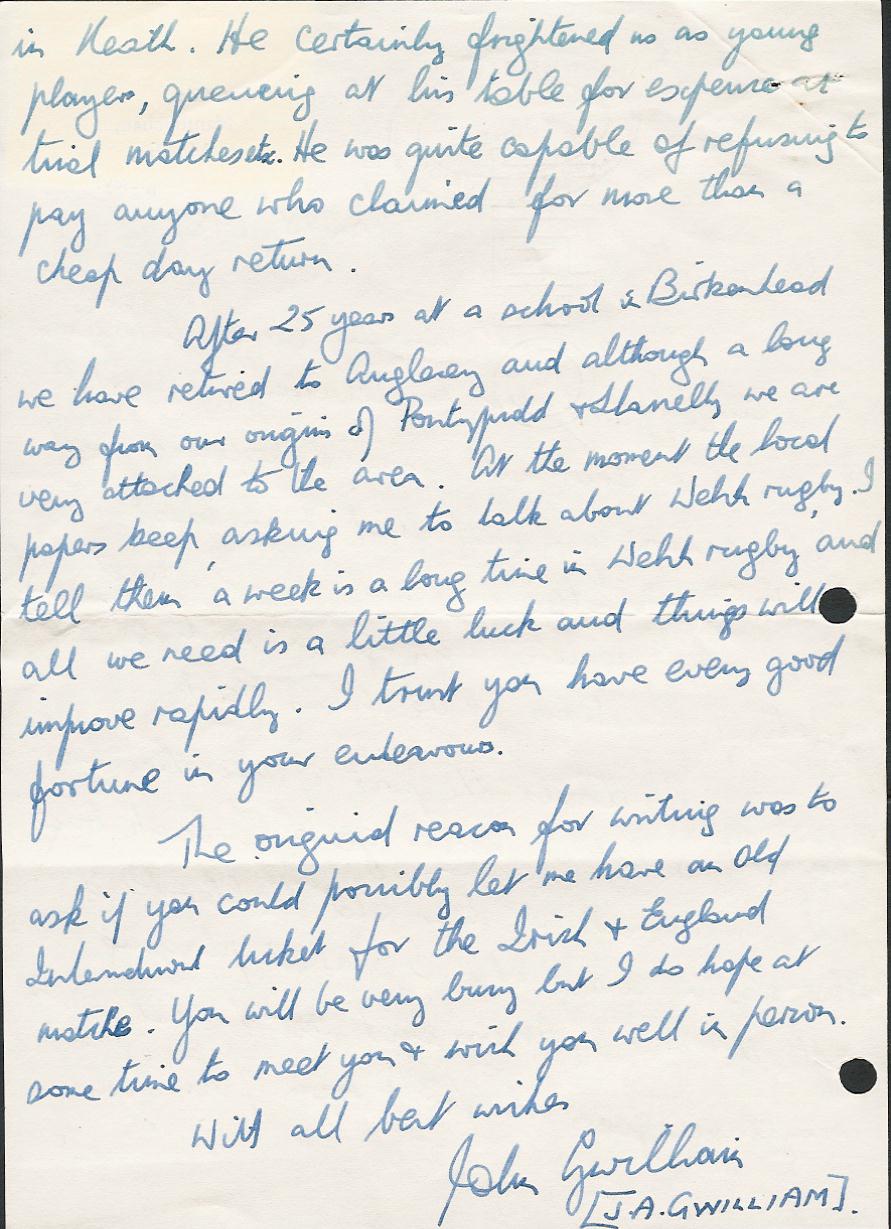 in Neath. He certainly frightened us as young
players, queueing at his table for expenses at
trial matches etc. He was quite capable of refusing to
pay anyone who claimed for more than a
cheap day return.
After 25 years at a school in Birkenhead
we have retired to Anglesey and although a long
way from our origins of Pontypridd & Llanelly we are
very attached to the area. At the moment the local
papers keep asking me to talk about Welsh rugby. I
tell them 'a week is a long time in Welsh rugby' and
all we need is a little luck and things will
improve rapidly. I trust you have every good
fortune in your endeavours.
The original reason for writing was to
ask if you could possibly let me have an Old
International ticket for the Irish & England
matches. You will be very busy but I do hope at
some time to meet you & wish you well in person.
With all best wishes
John Gwilliam
[J.A. GWILLIAM].